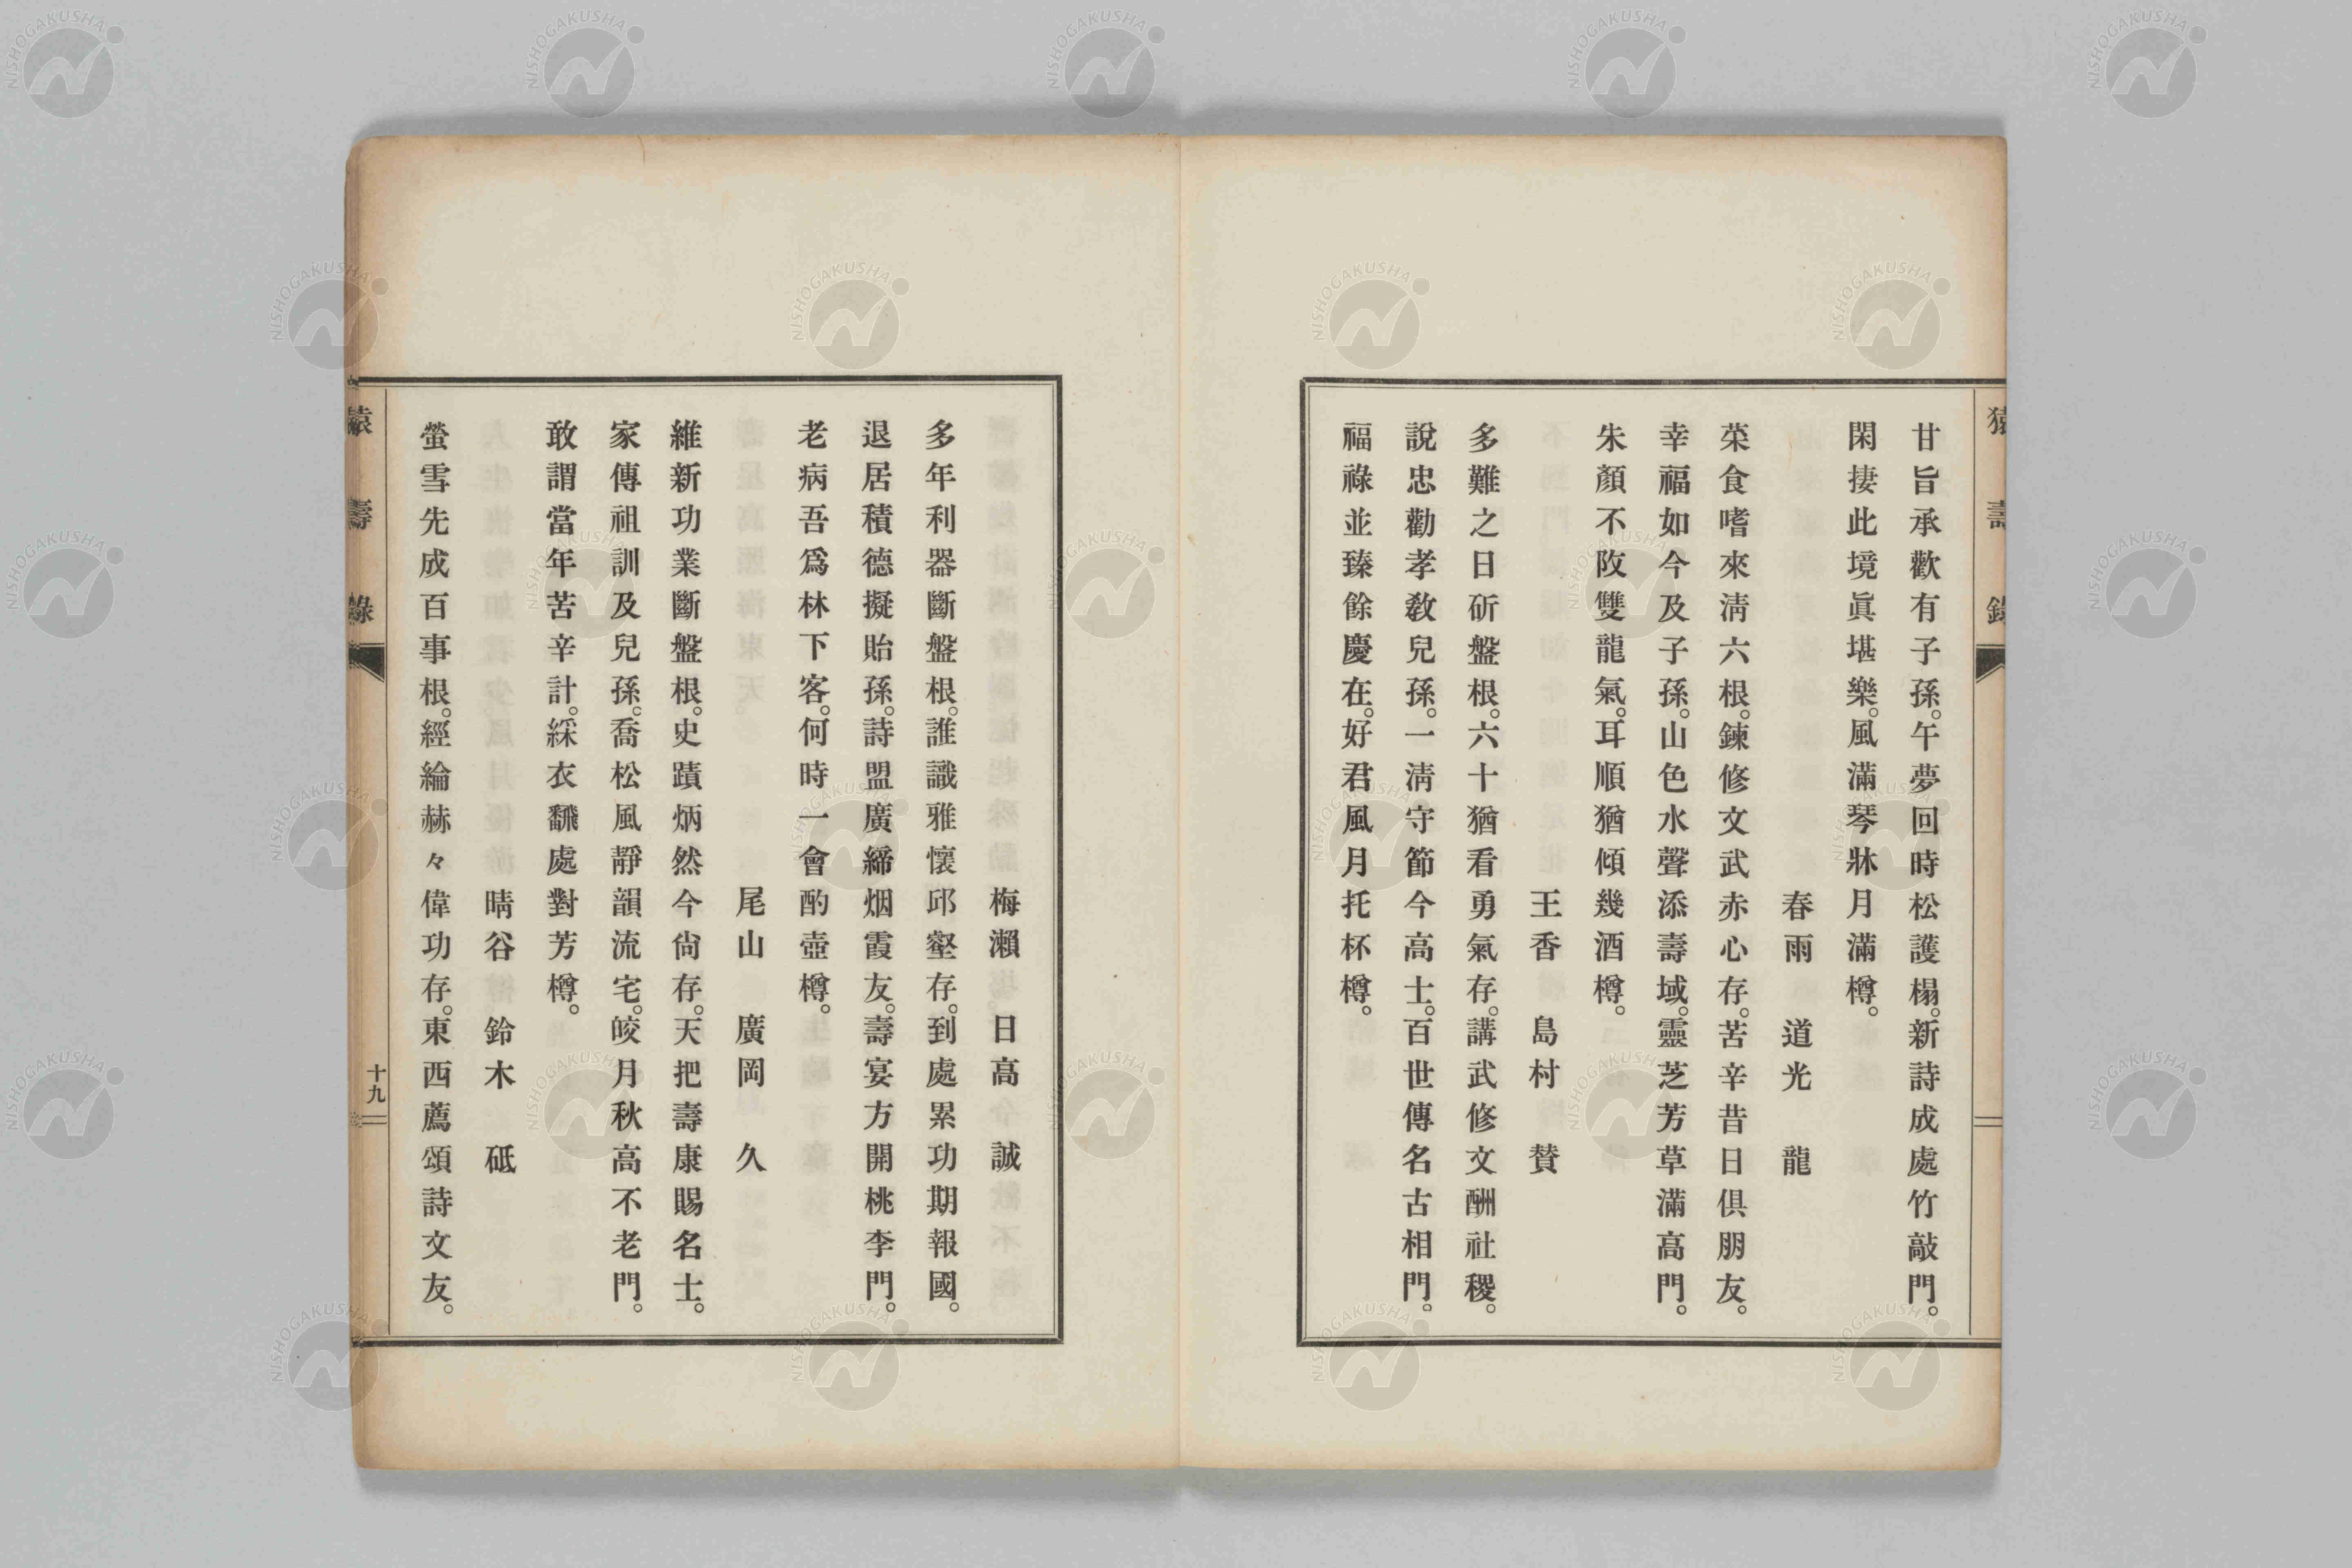 猿壽錄
甘旨承歡有子孫。午夢回時松護榻。新詩成處竹敲門。
閑捿此境眞堪樂。風滿琴牀月滿樽。
春雨　道光　龍
菜食嗜來淸六根。鍊修文武赤心存。苦辛昔日俱朋友。
幸福如今及子孫。山色水聲添壽域。靈芝芳草滿高門。
朱顏不攺雙龍氣。耳順猶傾幾酒樽。
王香　島村　賛
多難之日斫盤根。六十猶看勇氣存。講武修文酬社稷。
說忠勸孝敎兒孫。一淸守節今高士。百世傳名古相門。
福祿並臻餘慶在。好君風月托杯樽。
梅瀨　日高　誠
多年利器斷盤根。誰識雅懷邱壑存。到處累功期報國。
退居積德擬貽孫。詩盟廣締烟霞友。壽宴方開桃李門。
老病吾爲林下客。何時一會酌壺樽。
尾山　廣岡　久
維新功業斷盤根。史蹟炳然今尙存。天把壽康賜名士。
家傳祖訓及兒孫。喬松風靜韻流宅。皎月秋高不老門。
敢謂當年苦辛計。綵衣飜處對芳樽。
晴谷　鈴木　砥
螢雪先成百事根。經綸赫々偉功存。東西薦頌詩文友。
猿壽錄
十九
NISHOGAKUSHA